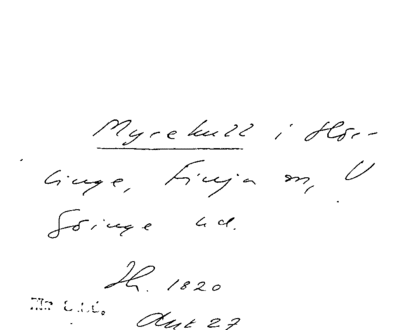 Myrekull i Hör-
linge, Finja sn, V
Göinge hd.
Jh. 1820
Ant 27